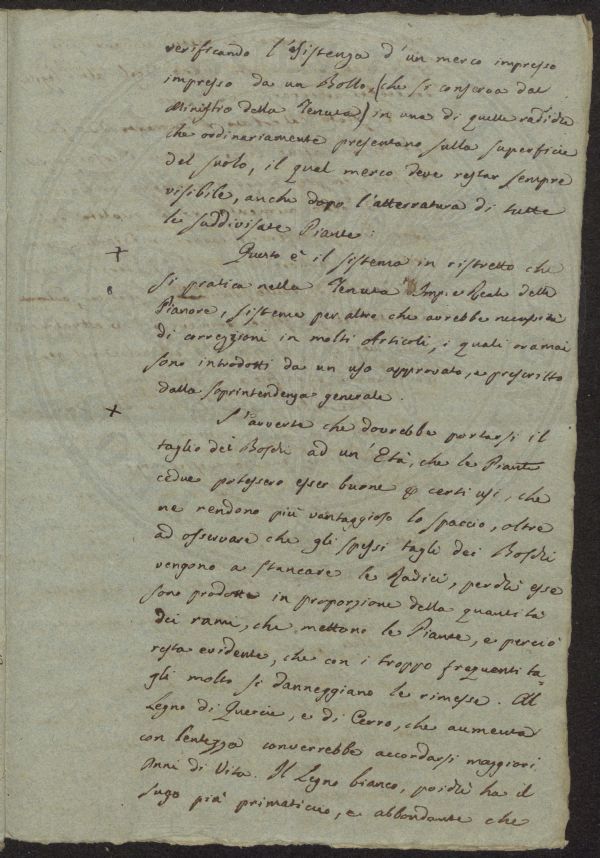 verificando l'esistenza d'un merco impresso
impresso da un Bollo (che si conserva dal
Ministro della Tenuta) in una di quelle radiche
che ordinariamente presentano sulla superficie
del suolo, il qual merco deve restar sempre
visibile, anche dopo l'atterratura di tutte
le suddivisate Piante:
+ Questo è il sistema in ristretto che
si pratica nella Tenuta Imp. e Reale delle
Pianore, sistema per altro che avrebbe necessità
di correzzioni in molti Articoli, i quali oramai
sono introdotti da un uso approvato, e prescritto
dalla soprintendenza generale.
+ S'avverte che dovrebbe portarsi il
taglio dei Boschi ad un'Età, che le Piante
cedue potessero esser buone a certi usi, che
ne rendono più vantaggioso lo spaccio, oltre
ad osservare che gli spessi tagli dei Boschi
vengono a stancare le Radici, perchè esse
sono prodotte in proporzione della quantità
dei rami, che mettono le Piante, e perciò
resta evidente, che con i troppo frequenti ta=
gli molto si danneggiano le rimesse. Al
Legno di Quercie, e di Cerro, che aumenta
con lentezza converrebbe accordarsi maggiori
Anni di Vita. Il Legno bianco, poichè ha il
sugo più primaticcio, e abbondante che